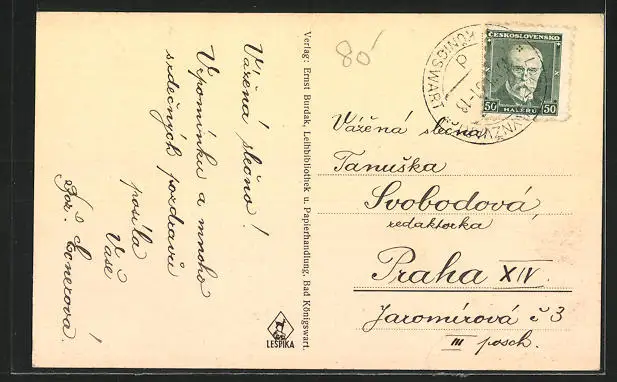 Vážená slečno!
Vzpomínku a mnoho
srdečných pozdravů
posíla
Vaše
Verlag: Ernst Burdak, Leihbibliothek u. Papierhandlung, Bad Königswart.
80
ČESKOSLOVENSKO
50 HALÉŘŮ 50
KÖNIGSWART
Vážená slečna
Tanuška
Svobodová,
redaktorka
Praha XIV.
Jaromírová č 3
III posch.
LEŠPIKA